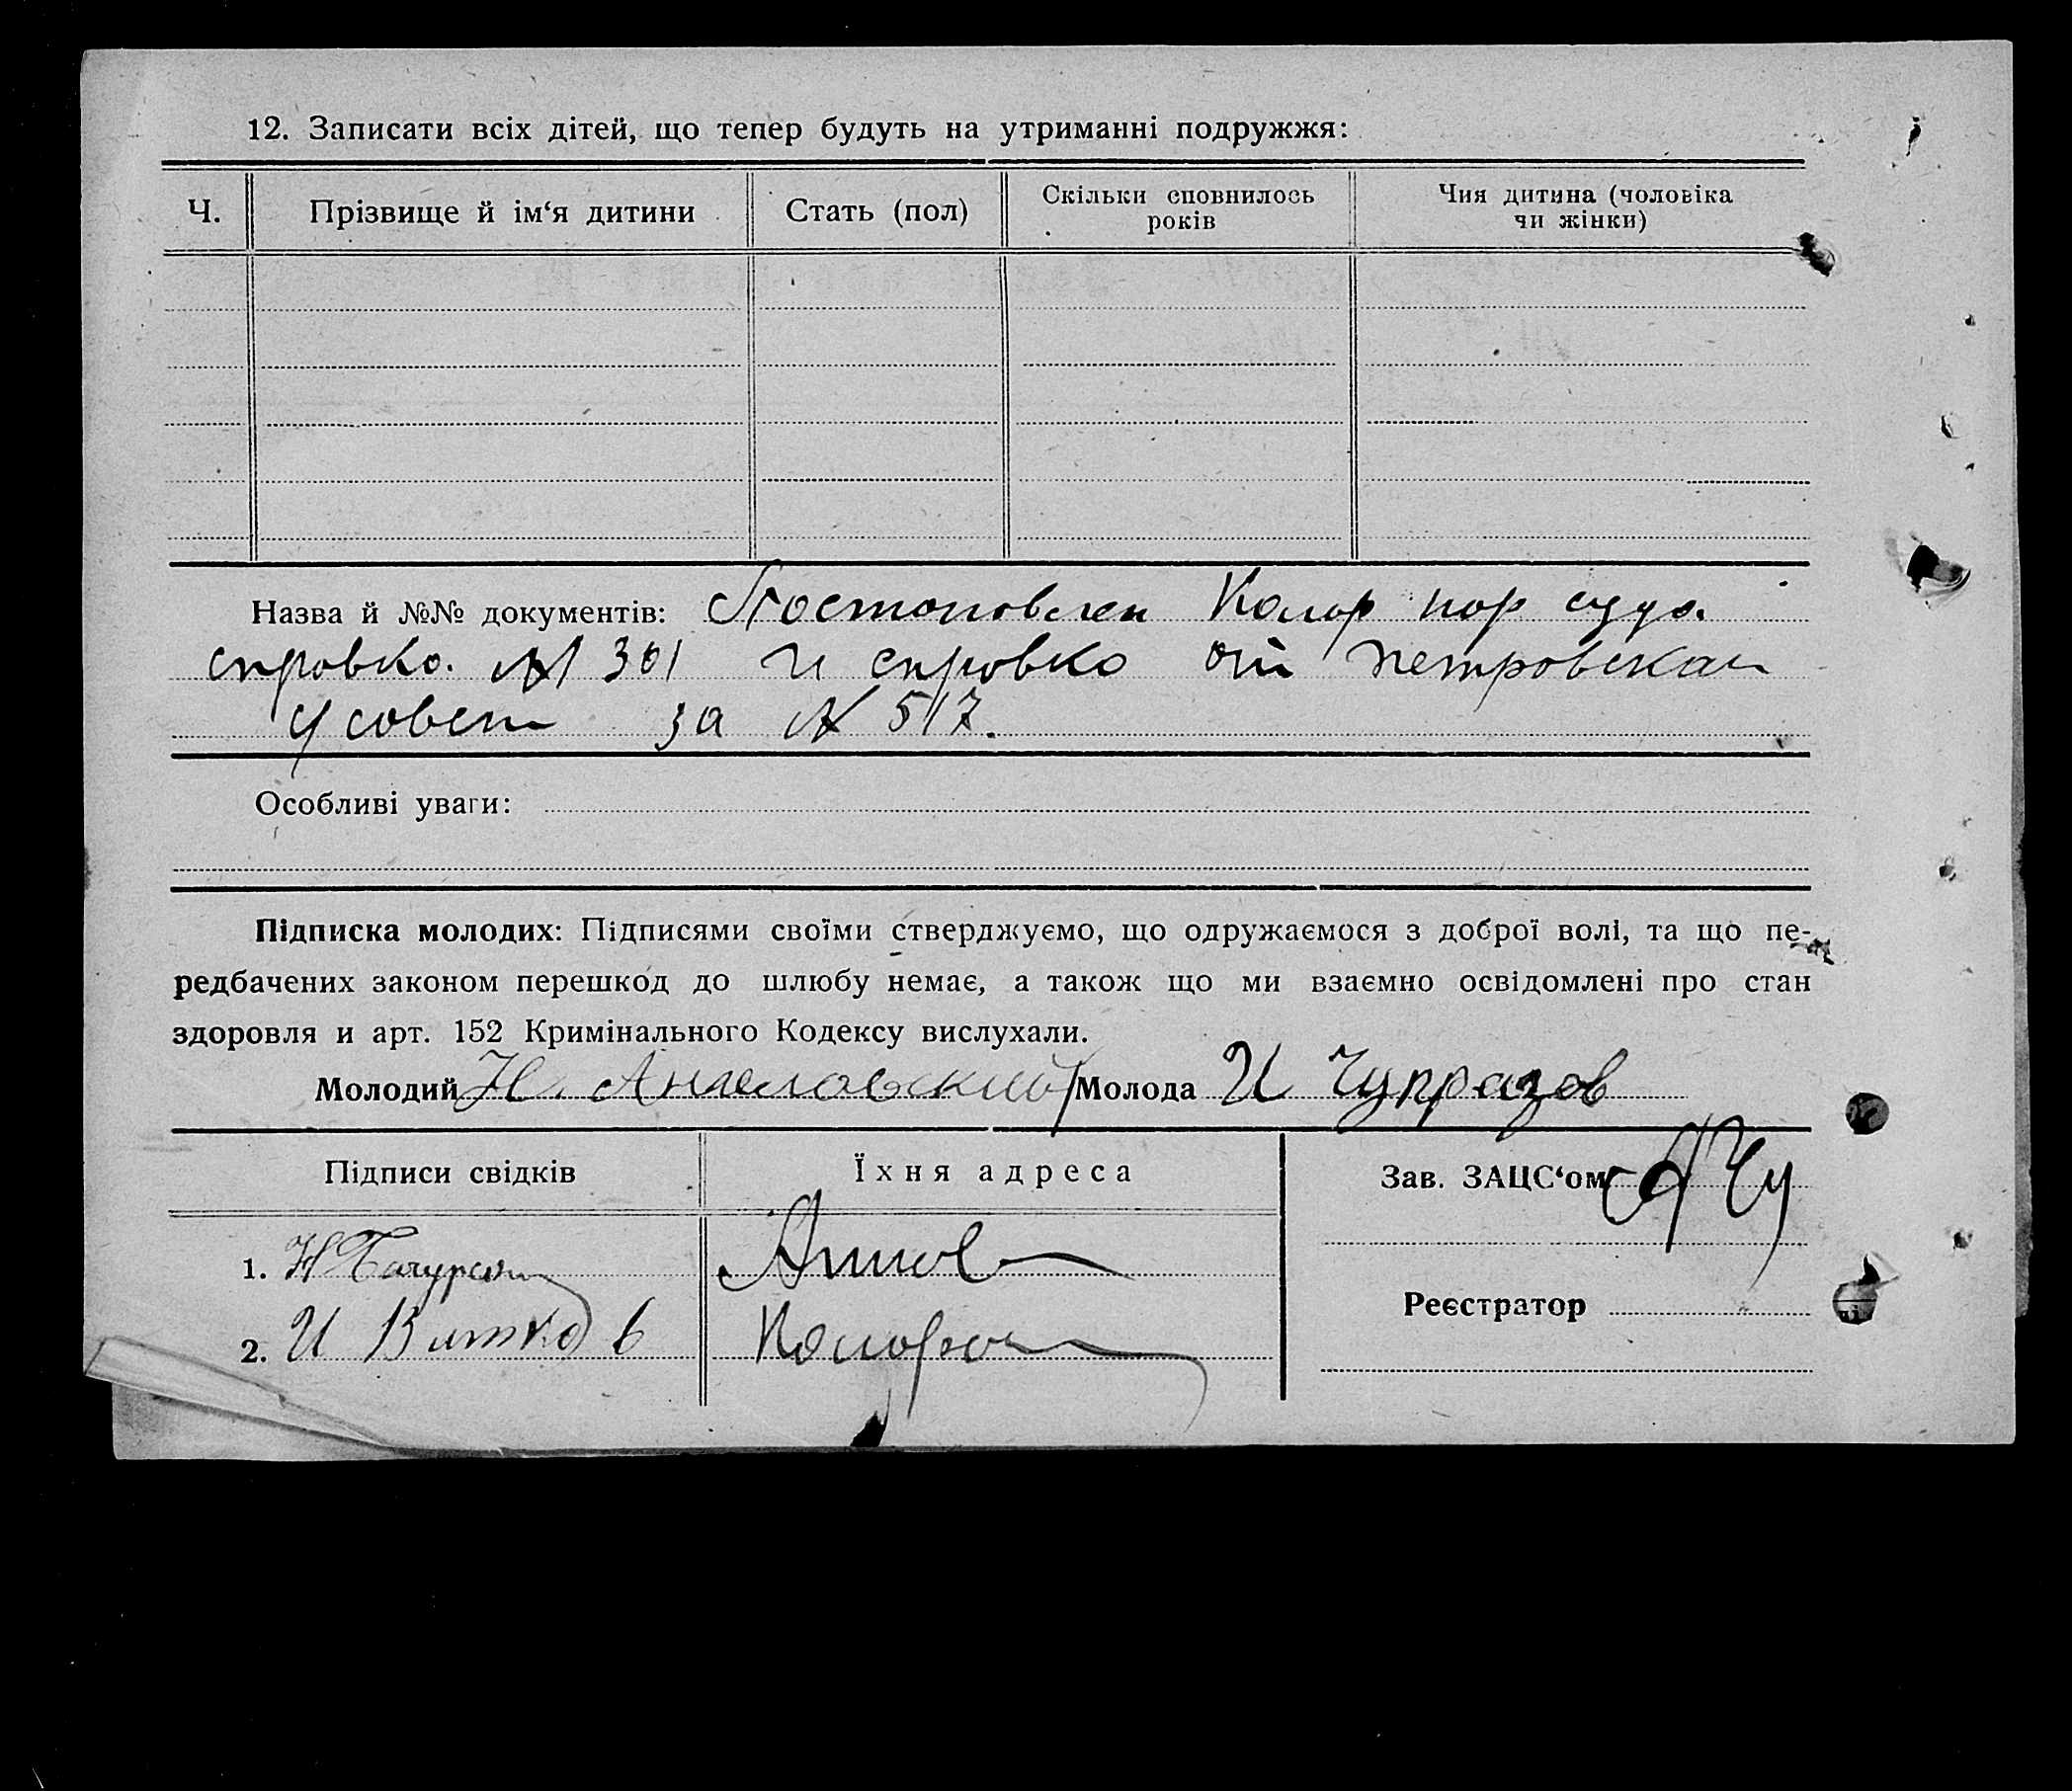 12. Записати всіх дітей, що тепер будуть на утриманні подружжя:
Ч. Прізвище й ім‘я дитини Стать (пол) Скільки сповнилось років Чия дитина (чоловіка чи жінки)
Назва й №№ документів: суда
справко. № 301 и справко от петровскаи
за № 517.
Особливі уваги:
Підписка молодих: Підписями своїми стверджуємо, що одружаємося з доброї волі, та що пе-
редбачених законом перешкод до шлюбу немає, а також що ми взаємно освідомлені про стан
здоровля и арт. 152 Кримінального Кодексу вислухали.
Молодий Молода И Чупразов
Підписи свідків Їхня адреса Зав. ЗАЦС‘ом
1.
Реєстратор
2. И